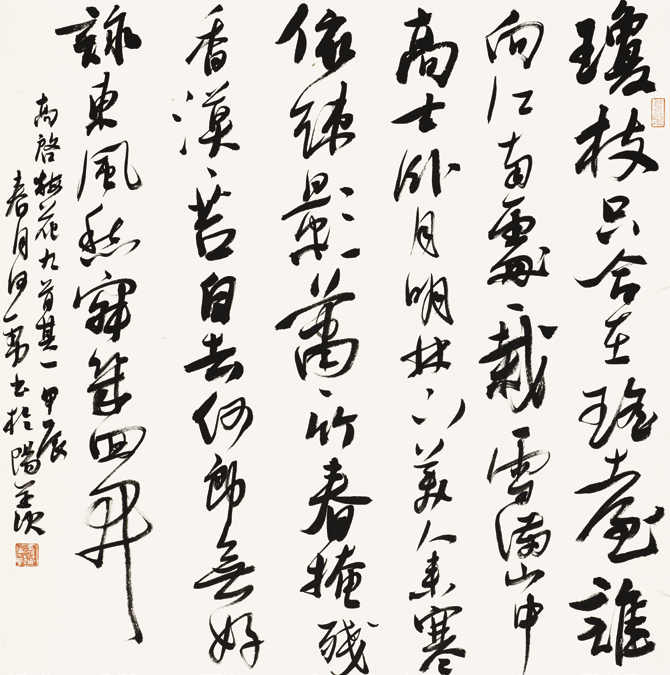 瓊枝只合在瑤臺誰
向江南處々栽雪滿山中
高士臥月明林下美人來寒
依疎影蕭々竹春掩殘
香漠々苔自去何郎無好
詠東風愁寂幾回開
高啓梅花九首其一甲辰
春月書於陽羨